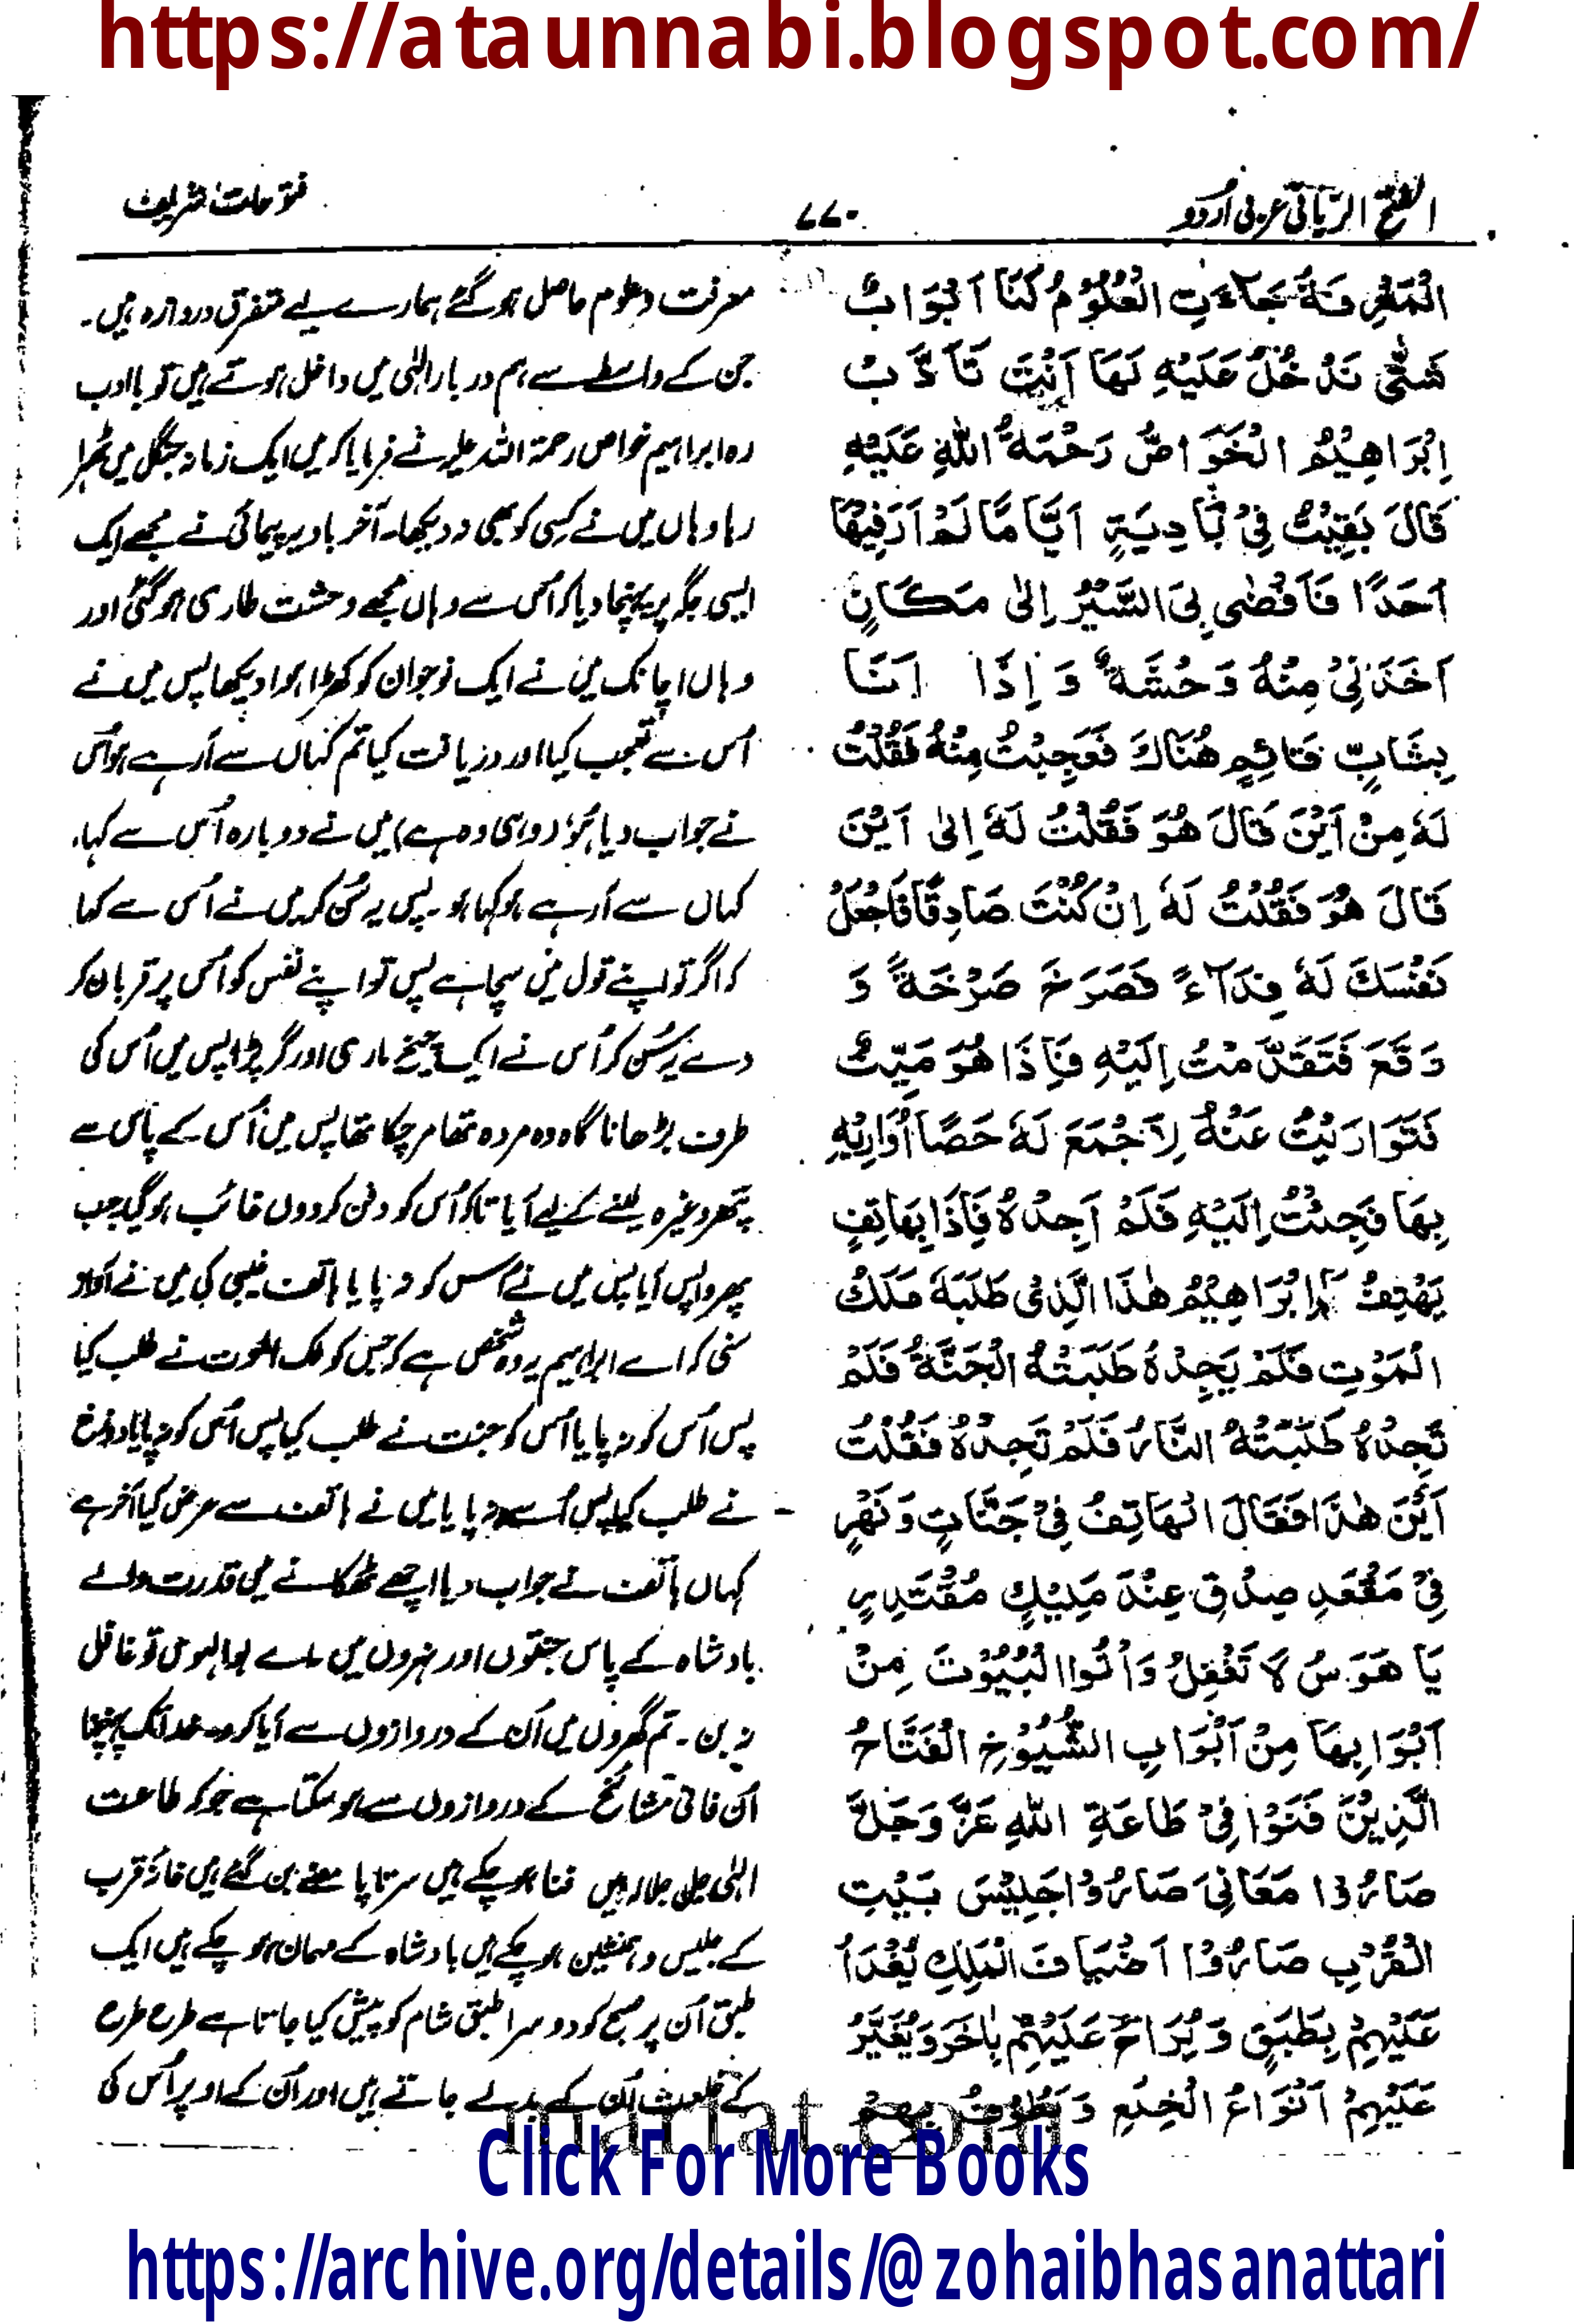 https://ataunnabi.blogspot.com/
الفتح الربانی عربی اُردو
۷۷۰
فتوحات شریف
الْمَعْرِفَةُ جَاءَتِ الْعُلُوْمُ لَنَا اَبْوَابٌ
شَتّٰى نَدْخُلُ عَلَيْهِ لَهَا اَنْتَ تَأَدَّبْ
اِبْرَاهِيْمُ الْخَوَاصُّ رَحْمَةُ اللهِ عَلَيْهِ
قَالَ بَقِيْتُ فِيْ بَادِيَةٍ اَيَّامًا لَمْ اَرَ فِيْهَا
اَحَدًا فَاَفْضٰى بِيَ السَّيْرُ اِلٰى مَكَانٍ
اَخَذَنِيْ مِنْهُ وَحْشَةٌ وَ اِذَا اَنَا
بِشَابٍّ قَائِمٍ هُنَاكَ فَعَجِبْتُ مِنْهُ فَقُلْتُ
لَهٗ مِنْ اَيْنَ قَالَ هُوَ فَقُلْتُ لَهٗ اِلٰى اَيْنَ
قَالَ هُوَ فَقُلْتُ لَهٗ اِنْ كُنْتَ صَادِقًا فَاجْعَلْ
نَفْسَكَ لَهٗ فِدَآءً فَصَرَخَ صَرْخَةً وَ
وَقَعَ فَتَقَدَّمْتُ اِلَيْهِ فَاِذَا هُوَ مَيِّتٌ
فَتَوَارَيْتُ عَنْهُ لِاَجْمَعَ لَهٗ حَصًا اُوَارِيْهِ
بِهَا فَجِئْتُ اِلَيْهِ فَلَمْ اَجِدْهُ فَاِذَا بِهَاتِفٍ
يَهْتِفُ يَا اِبْرَاهِيْمُ هٰذَا الَّذِيْ طَلَبَهٗ مَلَكُ
الْمَوْتِ فَلَمْ يَجِدْهُ طَلَبَتْهُ الْجَنَّةُ فَلَمْ
تَجِدْهُ طَلَبَتْهُ النَّارُ فَلَمْ تَجِدْهُ فَقُلْتُ
اَيْنَ هٰذَا فَقَالَ الْهَاتِفُ فِيْ جَنَّاتٍ وَنَهَرٍ
فِيْ مَقْعَدِ صِدْقٍ عِنْدَ مَلِيْكٍ مُقْتَدِرٍ
يَا هَوَسُ لَا تَغْفِلْ وَأْتُوا الْبُيُوْتَ مِنْ
اَبْوَابِهَا مِنْ اَبْوَابِ الشُّيُوْخِ الْفَتَّاحُ
الَّذِيْنَ فَنَوْا فِيْ طَاعَةِ اللهِ عَزَّ وَجَلَّ
صَارُوْا مَعَانِيَ صَارُوْا جَلِيْسَ بَيْتِ
الْقُرْبِ صَارُوْا اَضْيَافَ الْمَلِكِ يُغْدَاُ
عَلَيْهِمْ بِطَبَقٍ وَ يُرَاحُ عَلَيْهِمْ بِاٰخَرَ وَيُغَيَّرُ
عَلَيْهِمْ اَنْوَاعُ الْخِلَعِ وَ يَطُوْفُ بِهِمْ
معرفت و علوم حاصل ہو گئے ہمارے لیے متفرق دروازہ ہیں۔
جن کے واسطے سے ہم دربار الٰہی میں داخل ہوتے ہیں تو باادب
رہ ابراہیم خواص رحمۃ اللہ علیہ نے فرمایا کہ میں ایک زمانہ جنگل میں ٹھہرا
رہا وہاں میں نے کسی کو بھی نہ دیکھا۔ آخر بادیہ پیمائی نے مجھے ایک
ایسی جگہ پر پہنچا دیا کہ اُس سے وہاں مجھے وحشت طاری ہو گئی اور
وہاں اچانک میں نے ایک نوجوان کو کھڑا ہوا دیکھا پس میں نے
اُس سے تعجب کیا اور دریافت کیا تم کہاں سے آ رہے ہو اُس
نے جواب دیا ہُوَ (وہی وہ ہے) میں نے دوبارہ اُس سے کہا،
کہاں سے آ رہے ہو کہا ہو۔ پس یہ سُن کر میں نے اُس سے کہا
کہ اگر تو اپنے قول میں سچا ہے پس تو اپنے نفس کو اُس پر قربان کر
دے یہ سُن کر اُس نے ایک چیخ ماری اور گر پڑا پس میں اُس کی
طرف بڑھا ناگاہ وہ مردہ تھا مر چکا تھا پس میں اُس کے پاس سے
پتھر وغیرہ لینے کے لیے آیا تاکہ اُس کو دفن کر دوں غائب ہو گیا جب
پھر واپس آیا پس میں نے اُس کو نہ پایا ہاتف غیبی کی میں نے آواز
سُنی کہ اے ابراہیم یہ وہ شخص ہے کہ جس کو ملک الموت نے طلب کیا
پس اُس کو نہ پایا اُس کو جنت نے طلب کیا پس اُس کو نہ پایا دوزخ
نے طلب کیا پس اُسے نہ پایا میں نے ہاتف سے عرض کیا آخر ہے
کہاں ہاتف نے جواب دیا اچھے ٹھکانے میں قدرت والے
بادشاہ کے پاس جنتوں اور نہروں میں اے بوالہوس تو غافل
نہ بن۔ تم گھروں میں اُن کے دروازوں سے آیا کرو۔ خدا تک پہنچنا
اُن فانی مشائخ کے دروازوں سے ہو سکتا ہے جو کہ طاعت
الٰہی جل جلالہ میں فنا ہو چکے ہیں سرتاپا معنے بن گئے ہیں خانۂ قرب
کے جلیس و ہمنشین ہو چکے ہیں بادشاہ کے مہمان ہو چکے ہیں ایک
طبق اُن پر صبح کو دوسرا طبق شام کو پیش کیا جاتا ہے طرح طرح
کے خلعت اُن کے بدلے جاتے ہیں اور اُن کے اوپر اُس کی
marfat.com
Click For More Books
https://archive.org/details/@zohaibhasanattari